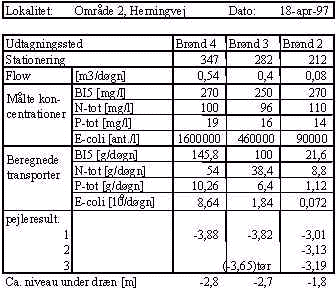 Lokalitet: Område 2, Herningvej Dato: 18-apr-97
Udtagningssted Brønd 4 Brønd 3 Brønd 2
Stationering 347 282 212
Flow [m3/døgn] 0,54 0,4 0,08
Målte kon- BI5 [mg/l] 270 250 270
centrationer N-tot [mg/l] 100 96 110
P-tot [mg/l] 19 16 14
E-coli [ant./l] 1600000 460000 90000
Beregnede BI5 [g/døgn] 145,8 100 21,6
transporter N-tot [g/døgn] 54 38,4 8,8
P-tot [g/døgn] 10,26 6,4 1,12
E-coli [10⁹/døgn] 8,64 1,84 0,072
pejleresult.
1 -3,88 -3,82 -3,01
2 -3,13
3 (-3,65)tør -3,19
Ca. niveau under dræn [m] -2,8 -2,7 -1,8